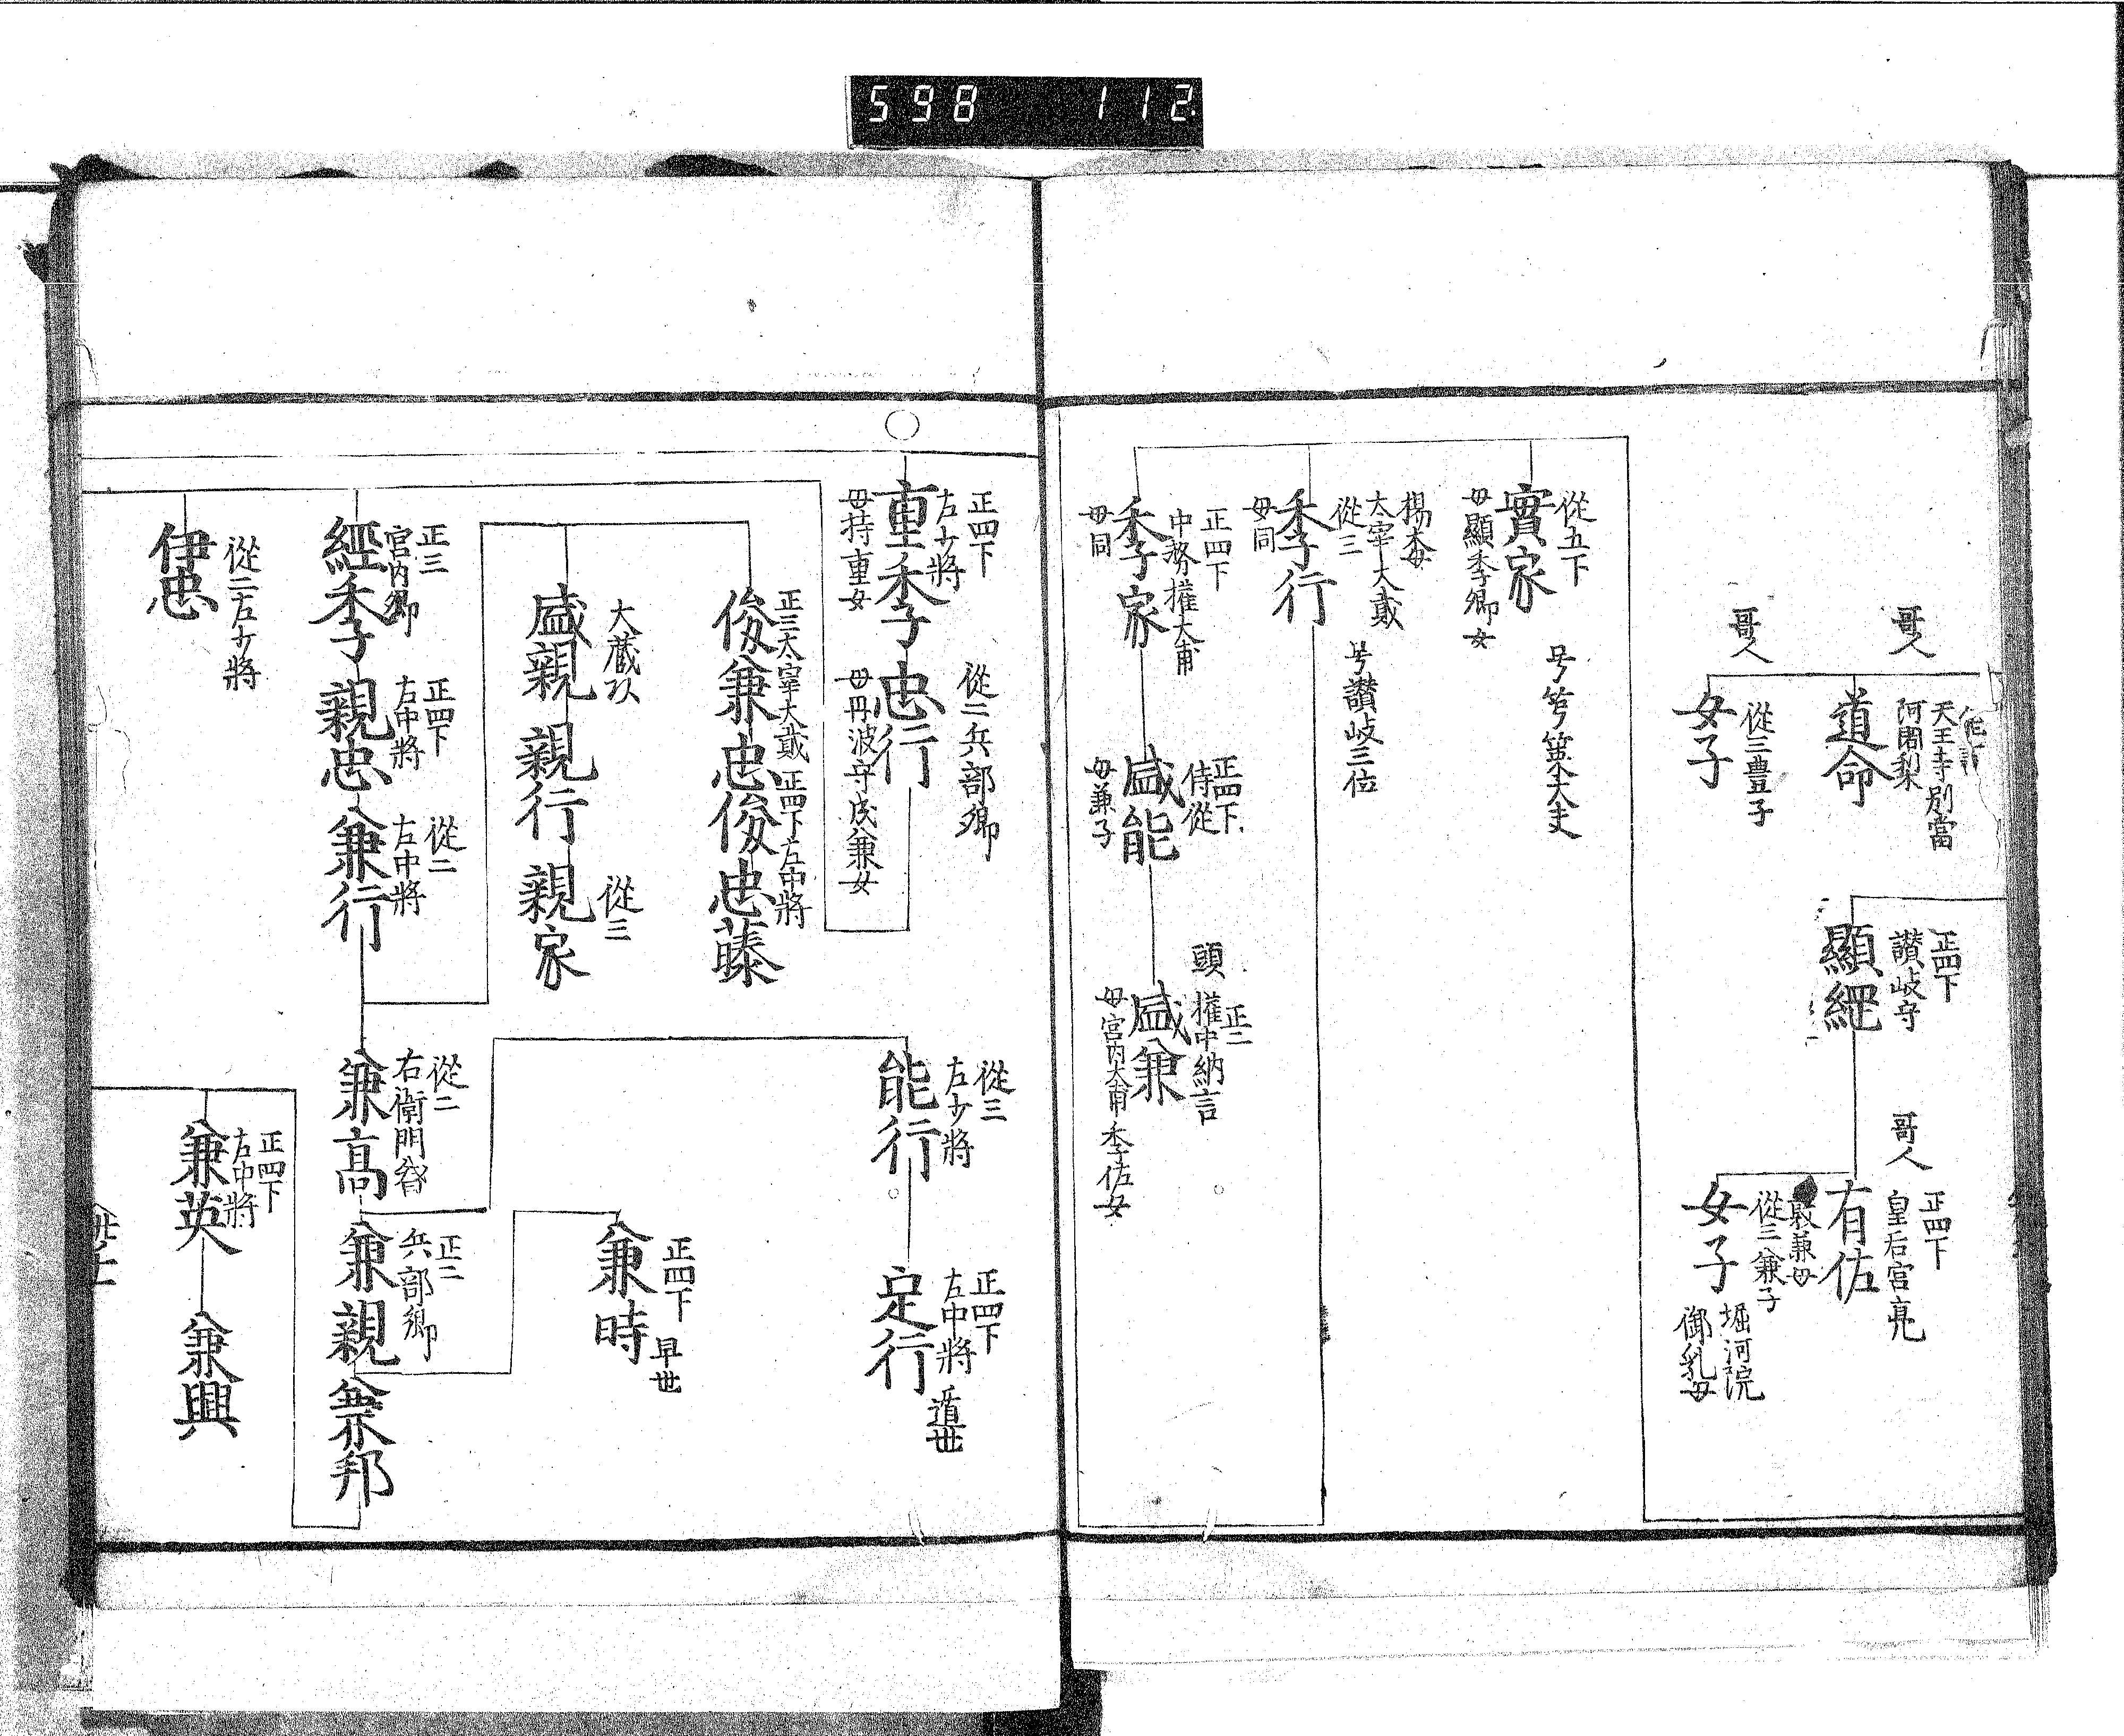 598 112
哥人
天王寺別當
阿闍梨
道命
哥人
從三豊子
女子
正四下
讃岐守
顯經
哥人
正四下
皇后宮亮
有佐
敦兼母
從三兼子
堀河院
御乳母
女子
從五下
實家
号篳篥大夫
母顯季卿女
楊梅
太宰大貳
從三
季行
号讃岐三位
母同
正四下
中務權大甫
季家
母同
正四下
侍從
盛能
母兼子
頭
正二
權中納言
盛兼
母宮内大甫季佐女
正四下
左少將
重季
母持重女
從二兵部卿
忠行
母丹波守成兼女
從三
左少將
能行
正四下
左中將
遁世
定行
正三太宰大貳
俊兼
忠俊
正四下左中將
忠藤
大蔵
盛親
親行
從三
親家
正四下
早世
兼時
正三
宮内卿
經季
正四下
右中將
親忠
從二
左中將
兼行
從二
右衛門督
兼高
正二
兵部卿
兼親
兼邦
從二左少將
伊忠
正四下
左中將
兼英
兼興